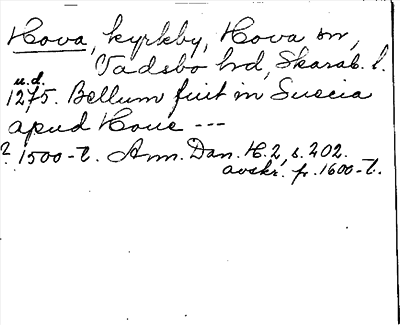 Hova, kyrkby, Hova sn,
Vadsbo hd, Skarab. l.
u.d.
1275. Bellum fuit in Suecia
apud Houe ---
? 1500-t. Ann. Dan. H. 2, s. 202.
avskr. fr. 1600-t.